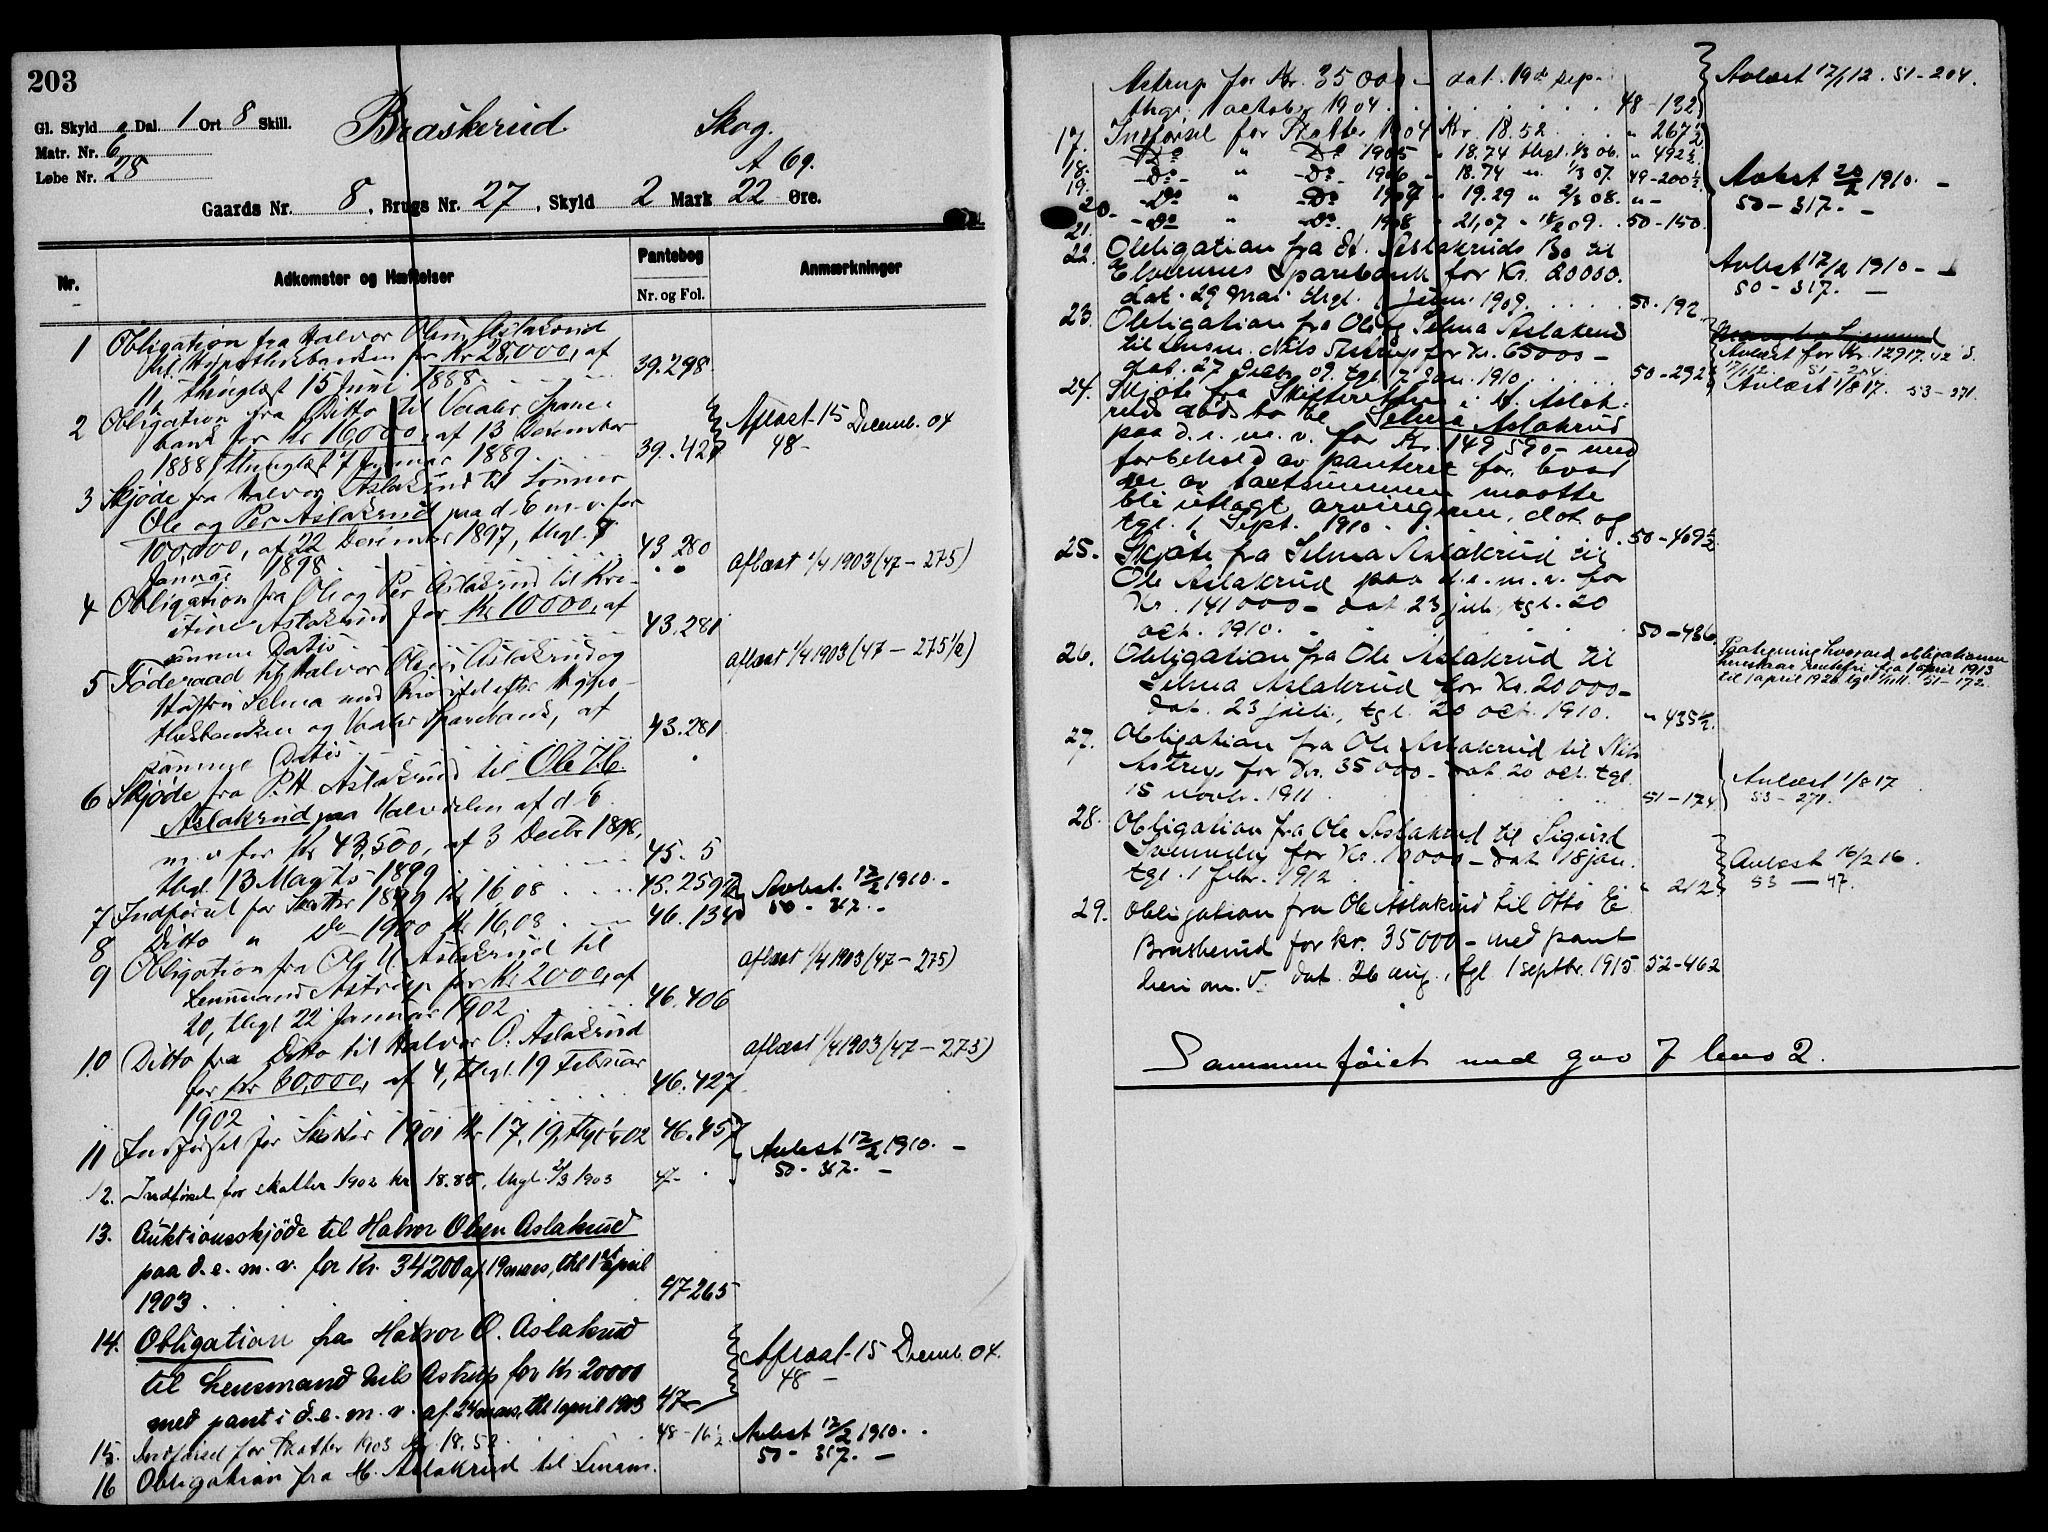 203
Gl. Skyld " Dal. 1 Ort 8 Skill.
Matr. Nr. 6
Løbe Nr. 28
Braskerud Skog.
A 69.
Gaards Nr. 8, Brugs Nr. 27, Skyld 2 Mark 22 Øre.
Nr. Adkomster og Hæftelser Pantebog Nr. og Fol. Anmærkninger
1 Obligation fra Halvor Olsen Aslakrud
til Hypothekbanken for Kr 28,000, af
11, thinglæst 15 Juni 1888 39.298
2 Obligation fra Ditto til Vaaler Spare-
bank for Kr 16,000, af 13 December
1888, thinglæst 7 Januar 1889 39.427 Aflæst 15 Decemb. 04
48 -
3 Skjøde fra Halvor Aslakrud til Sønner
Ole og Per Aslakrud paa d. E. m. v. for
100,000, af 22 December 1897, thgl. 7
Januar 1898 43.280
4 Obligation fra Ole og Per Aslakrud til Kri-
stine Aslakrud for Kr 10000, af
samme Datis 43.281 aflæst 1/4 1903 (47-275)
5 Føderaad til Halvor Olsen Aslakrud og
Hustru Selma med Prioritet efter Hypo-
thekbanken og Vaaler Sparebank, af
samme Datis 43.281 aflæst 1/4 1903 (47-275 1/2)
6 Skjøde fra P. H. Aslakrud til Ole H.
Aslakrud paa Halvdelen af d. E.
m. v for Kr 43,500, af 3 Decbr 1898,
thgl. 13 Marts 1899 45.5
7 Indførsel for Skatter 1899 Kr 16,08 45.259 1/2 Avlæst 12/2 1910. -
8 Ditto " Do 1900 Kr 16,08 46.134 50-317. -
9 Obligation fra Ole H. Aslakrud til
Lensmand Astrup for Kr 2000, af
20, thgl 22 Januar 1902 46.406 aflæst 1/4 1903 (47-275)
10 Ditto fra Ditto til Halvor O. Aslakrud
for Kr 60,000, af 4, thgl. 19 Februar
1902 46.427 aflæst 1/4 1903 (47-275)
11 Indførsel for Skatter 1901 Kr 17,19, thgl 02 46.457 Avlæst 12/2 1910. -
12. Indførsel for skatter 1902 kr 18.85, thgl 2/3 1903 47- 50-317. -
13. Auktionsskjøde til Halvor Olsen Aslakrud
paa d. e. m. v. for Kr. 34200 af 19 mars, thl 1 april
1903 47 265
14. Obligation fra Halvor O. Aslakrud
til Lensmand Nils Astrup for Kr 20000
med pant i d. e. m. v. af 24 mars, thl 1 april 1903 47- Aflæst 15 Decemb. 04.
48 -
15. Indførsel for Skatter 1903 Kr. 18.52 48-16 1/2 Avlæst 12/2 1910.
50-317. -
16 Obligation fra H. Aslakrud til Lensm.
Astrup for Kr. 35000 - dat. 19de sep.
thgl. 1 october 1904 48-132 Avlæst 17/12. 51-204.
17. Indførsel for Skatter 1904 Kr. 18.52 " 267 1/2
18. -Do " -Do 1905 " 18.74 thgl. 1/3 06. " 492 1/2
19. -Do- " -Do- 1906 " 18.74 " 1/3 07. 49-200 1/2 Avlæst 1910. -
20. -Do " -Do- 1907 " 19.29 " 2/3 08. " - 50-317. -
21. -Do " -Do 1908 " 21,07 " 09. 50-150.
22. Obligation fra H. Aslakruds Bo til
Elverums Sparebank for Kr. 20000.
dat. 29 Mai thgl. 1 Juni 1909 50.192 Avlæst 12/2 1910 -
50-317. -
23. Obligation fra Ole og Selma Aslakrud
til Lensm. Nils Astrup for Kr. 65000 -
dat. 27 Decbr. 09. tgl. 7 Jan. 1910 50-292 Avlæst for Kr. 12917.42
51-204
Avlæst 1/8 17. 53-271.
24. Skjøte fra Skifteretten i H. Aslak-
ruds dødsbo til Selma Aslakrud
paa d. e. m. v. for Kr. 149590 - med
forbehold av panteret for hvad
der av takstsummen maatte
bli utlagt arvingerne, dat. og
tgl. 1 Sept. 1910 50-409 1/2
25. Skjøte fra Selma Aslakrud til
Ole Aslakrud paa d. e. m. v. for
Kr. 141000 - dat 23 juli, tgl. 20
oct. 1910. 50-436
26. Obligation fra Ole Aslakrud til
Selma Aslakrud for Kr. 20000 -
dat. 23 juli, tgl. 20 oct. 1910. " 435 1/2. Paategning hvorved obligationen
henstaar rentefri fra 1 april 1913
til 1 april 1926 tgl 51-172.
27. Obligation fra Ole Aslakrud til Nils
Astrup for Kr. 35000 - dat. 20 oct. tgl.
15 novbr. 1911 51-174 Avlæst 1/8 17
53-271.
28. Obligation fra Ole Aslakrud til Sigurd
for Kr. 10000 - dat 18 jan.
tgl. 1 febr. 1912 " 212 Avlæst 16/2 16.
53-47.
29. Obligation fra Ole Aslakrud til Otto E.
Braskerud for kr. 35000 - med pant
heri m. v. dat. 26 aug., tgl 1 septbr. 1915 52-462
Sammenføiet med gno 7 bno 2.